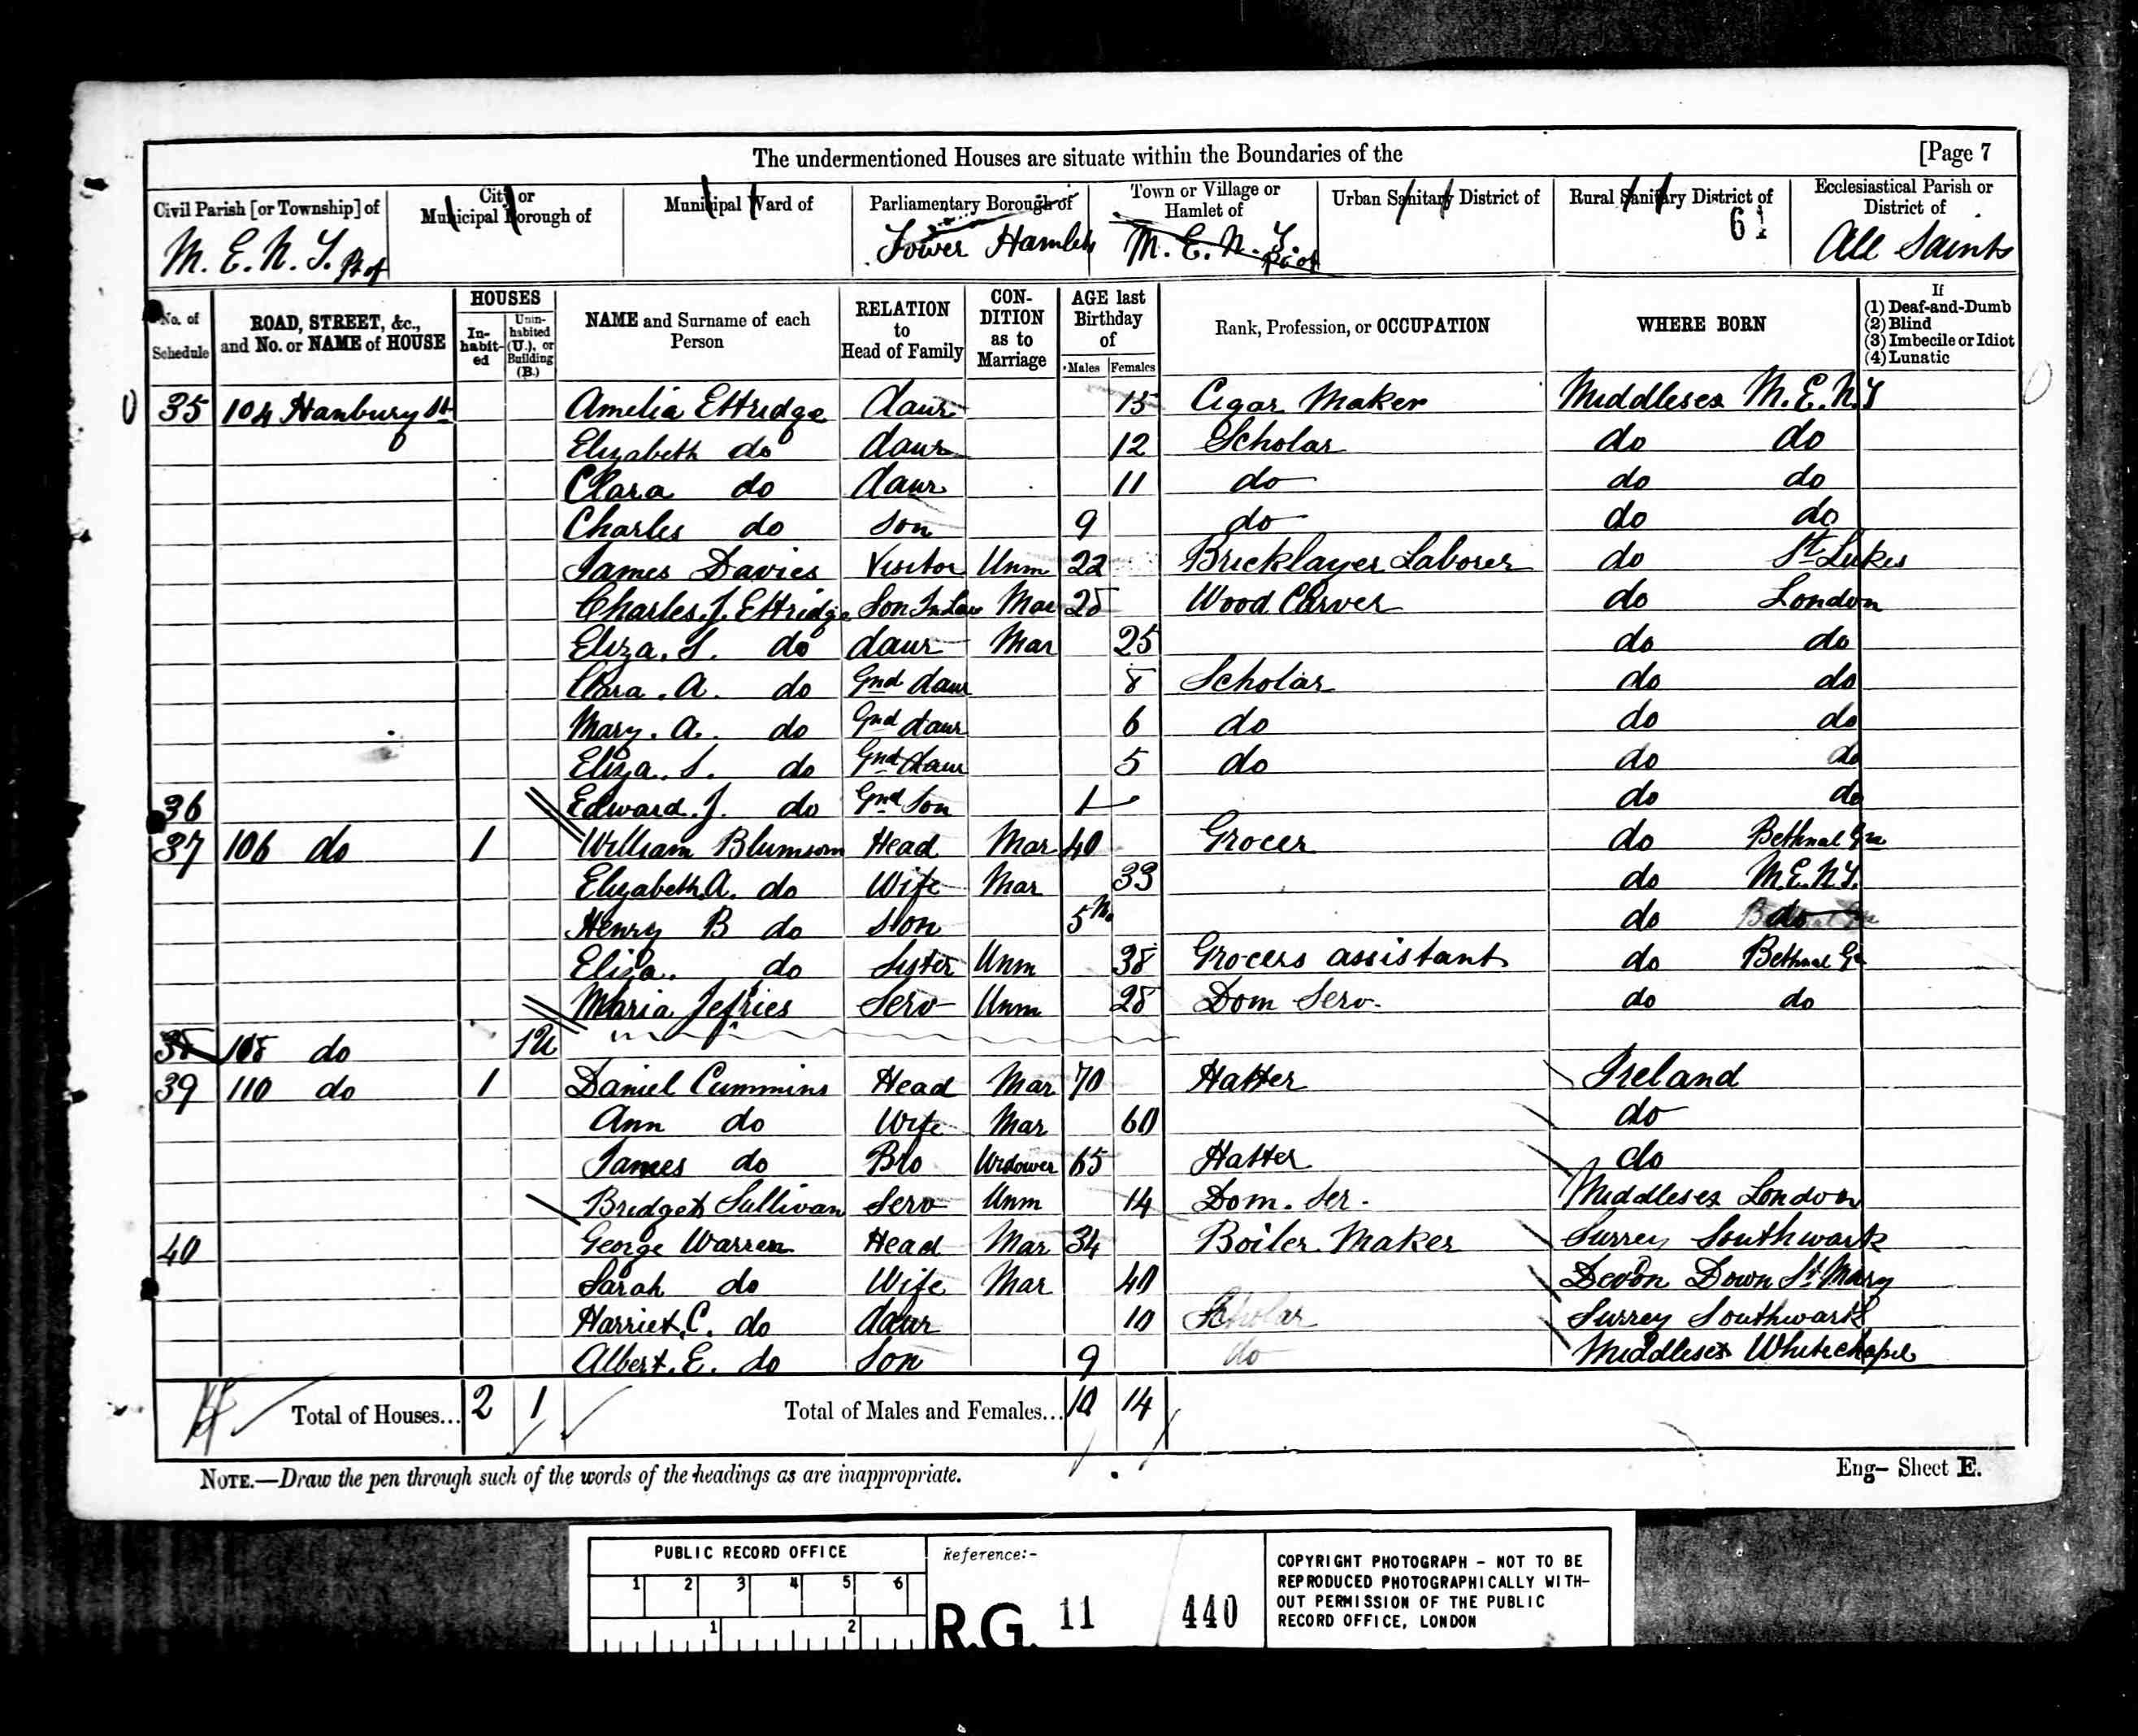 The undermentioned Houses are situate within the Boundaries of the [Page 7
Civil Parish [or Township] of
City or Municipal Borough of
Municipal Ward of
Parliamentary Borough of
Town or Village or Hamlet of
Urban Sanitary District of
Rural Sanitary District of
Ecclesiastical Parish or District of
M. E. N. T. Pt of
Tower Hamlets
M. E. N. T. Pt of
61
All Saints
No. of Schedule
ROAD, STREET, &c., and No. or NAME of HOUSE
HOUSES
In-habit-ed
Unin-habited (U.), or Building (B.)
NAME and Surname of each Person
RELATION to Head of Family
CON-DITION as to Marriage
AGE last Birthday of
Males Females
Rank, Profession, or OCCUPATION
WHERE BORN
If
(1) Deaf-and-Dumb
(2) Blind
(3) Imbecile or Idiot
(4) Lunatic
35 104 Hanbury St Amelia Ettridge daur 15 Cigar Maker Middlesex M. E. N. T
Elizabeth do daur 12 Scholar do do
Clara do daur 11 do do do
Charles do Son 9 do do do
James Davies Visitor Unm 22 Bricklayer Laborer do St Lukes
Charles. J. Ettridge Son In Law Mar 28 Wood Carver do London
Eliza. S. do daur Mar 25 do do
Clara. A. do Gnd daur 8 Scholar do do
Mary. A. do Gnd daur 6 do do do
Eliza. S. do Gnd daur 5 do do do
36 Edward. J. do Gnd Son 1 do do
37 106 do 1 William Blumsom Head Mar 40 Grocer do Bethnal Gn
Elizabeth A. do Wife Mar 33 do M.E.N.T.
Henry B do Son 5 M. do do
Eliza. do Sister Unm 38 Grocers assistant do Bethnal Gn
Maria Jefries Serv Unm 28 Dom Serv. do do
38 108 do 1U
39 110 do 1 Daniel Cummins Head Mar 70 Hatter Ireland
Ann do Wife Mar 60 do
James do Bro Widower 65 Hatter do
Bridget Sullivan Serv Unm 14 Dom. Ser. Middlesex London
40 George Warren Head Mar 34 Boiler Maker Surrey Southwark
Sarah do Wife Mar 40 Devon Down St Mary
Harriet. C. do daur 10 Scholar Surrey Southwark
Albert. E. do Son 9 do Middlesex Whitechapel
Total of Houses... 2 1 Total of Males and Females... 10 14
NOTE.—Draw the pen through such of the words of the headings as are inappropriate.
Eng— Sheet E.
PUBLIC RECORD OFFICE
1 2 3 4 5 6
1 2
Reference:-
R.G. 11 440
COPYRIGHT PHOTOGRAPH - NOT TO BE
REPRODUCED PHOTOGRAPHICALLY WITH-
OUT PERMISSION OF THE PUBLIC
RECORD OFFICE, LONDON